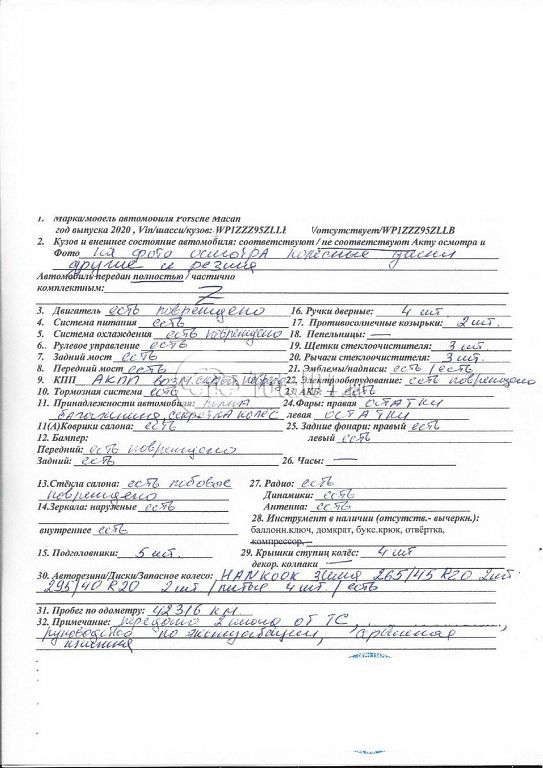 1. Марка/модель автомобиля Porsche Macan
год выпуска 2020 , Vin/шасси/кузов: WP1ZZZ95ZLLB /отсутствует/WP1ZZZ95ZLLB
2. Кузов и внешнее состояние автомобиля: соответствуют / не соответствуют Акту осмотра и
Фото на фото осмотра колесные диски
другие и резина
Автомобиль передан полностью / частично
комплектным: Z
3. Двигатель есть повреждено 16. Ручки дверные: 4 шт.
4. Система питания есть 17. Противосолнечные козырьки: 2 шт.
5. Система охлаждения есть повреждено 18. Пепельницы: —
6. Рулевое управление есть 19. Щетки стеклоочистителя: 3 шт.
7. Задний мост есть 20. Рычаги стеклоочистителя: 3 шт.
8. Передний мост есть 21. Эмблемы/надписи: есть / есть
9. КПП АКПП 22. Электрооборудование: есть повреждено
10. Тормозная система есть 23 АКБ: + есть
11. Принадлежности автомобиля: 24.Фары: правая остатки
багажника, секретка колес левая остатки
11(А)Коврики салона: есть 25. Задние фонари: правый есть
12. Бампер: левый есть
Передний: есть повреждено
Задний: есть 26. Часы: —
13.Стёкла салона: есть лобовое 27. Радио: есть
повреждено Динамики: есть
14.Зеркала: наружные есть Антенна: есть
28. Инструмент в наличии (отсутств.- вычеркн.):
внутреннее есть баллонн.ключ, домкрат, букс.крюк, отвёртка,
компрессор.
15. Подголовники: 5 шт. 29. Крышки ступиц колёс: 4 шт
декор. колпаки —
30. Авторезина/Диски/Запасное колесо: HANKOOK зима 265/45 R20 2шт.
295/40 R20 2 шт / литые 4 шт / есть
31. Пробег по одометру: 42316 км.
32. Примечание: передано 2 ключа от ТС,
руководство по эксплуатации, сервисная
книжка